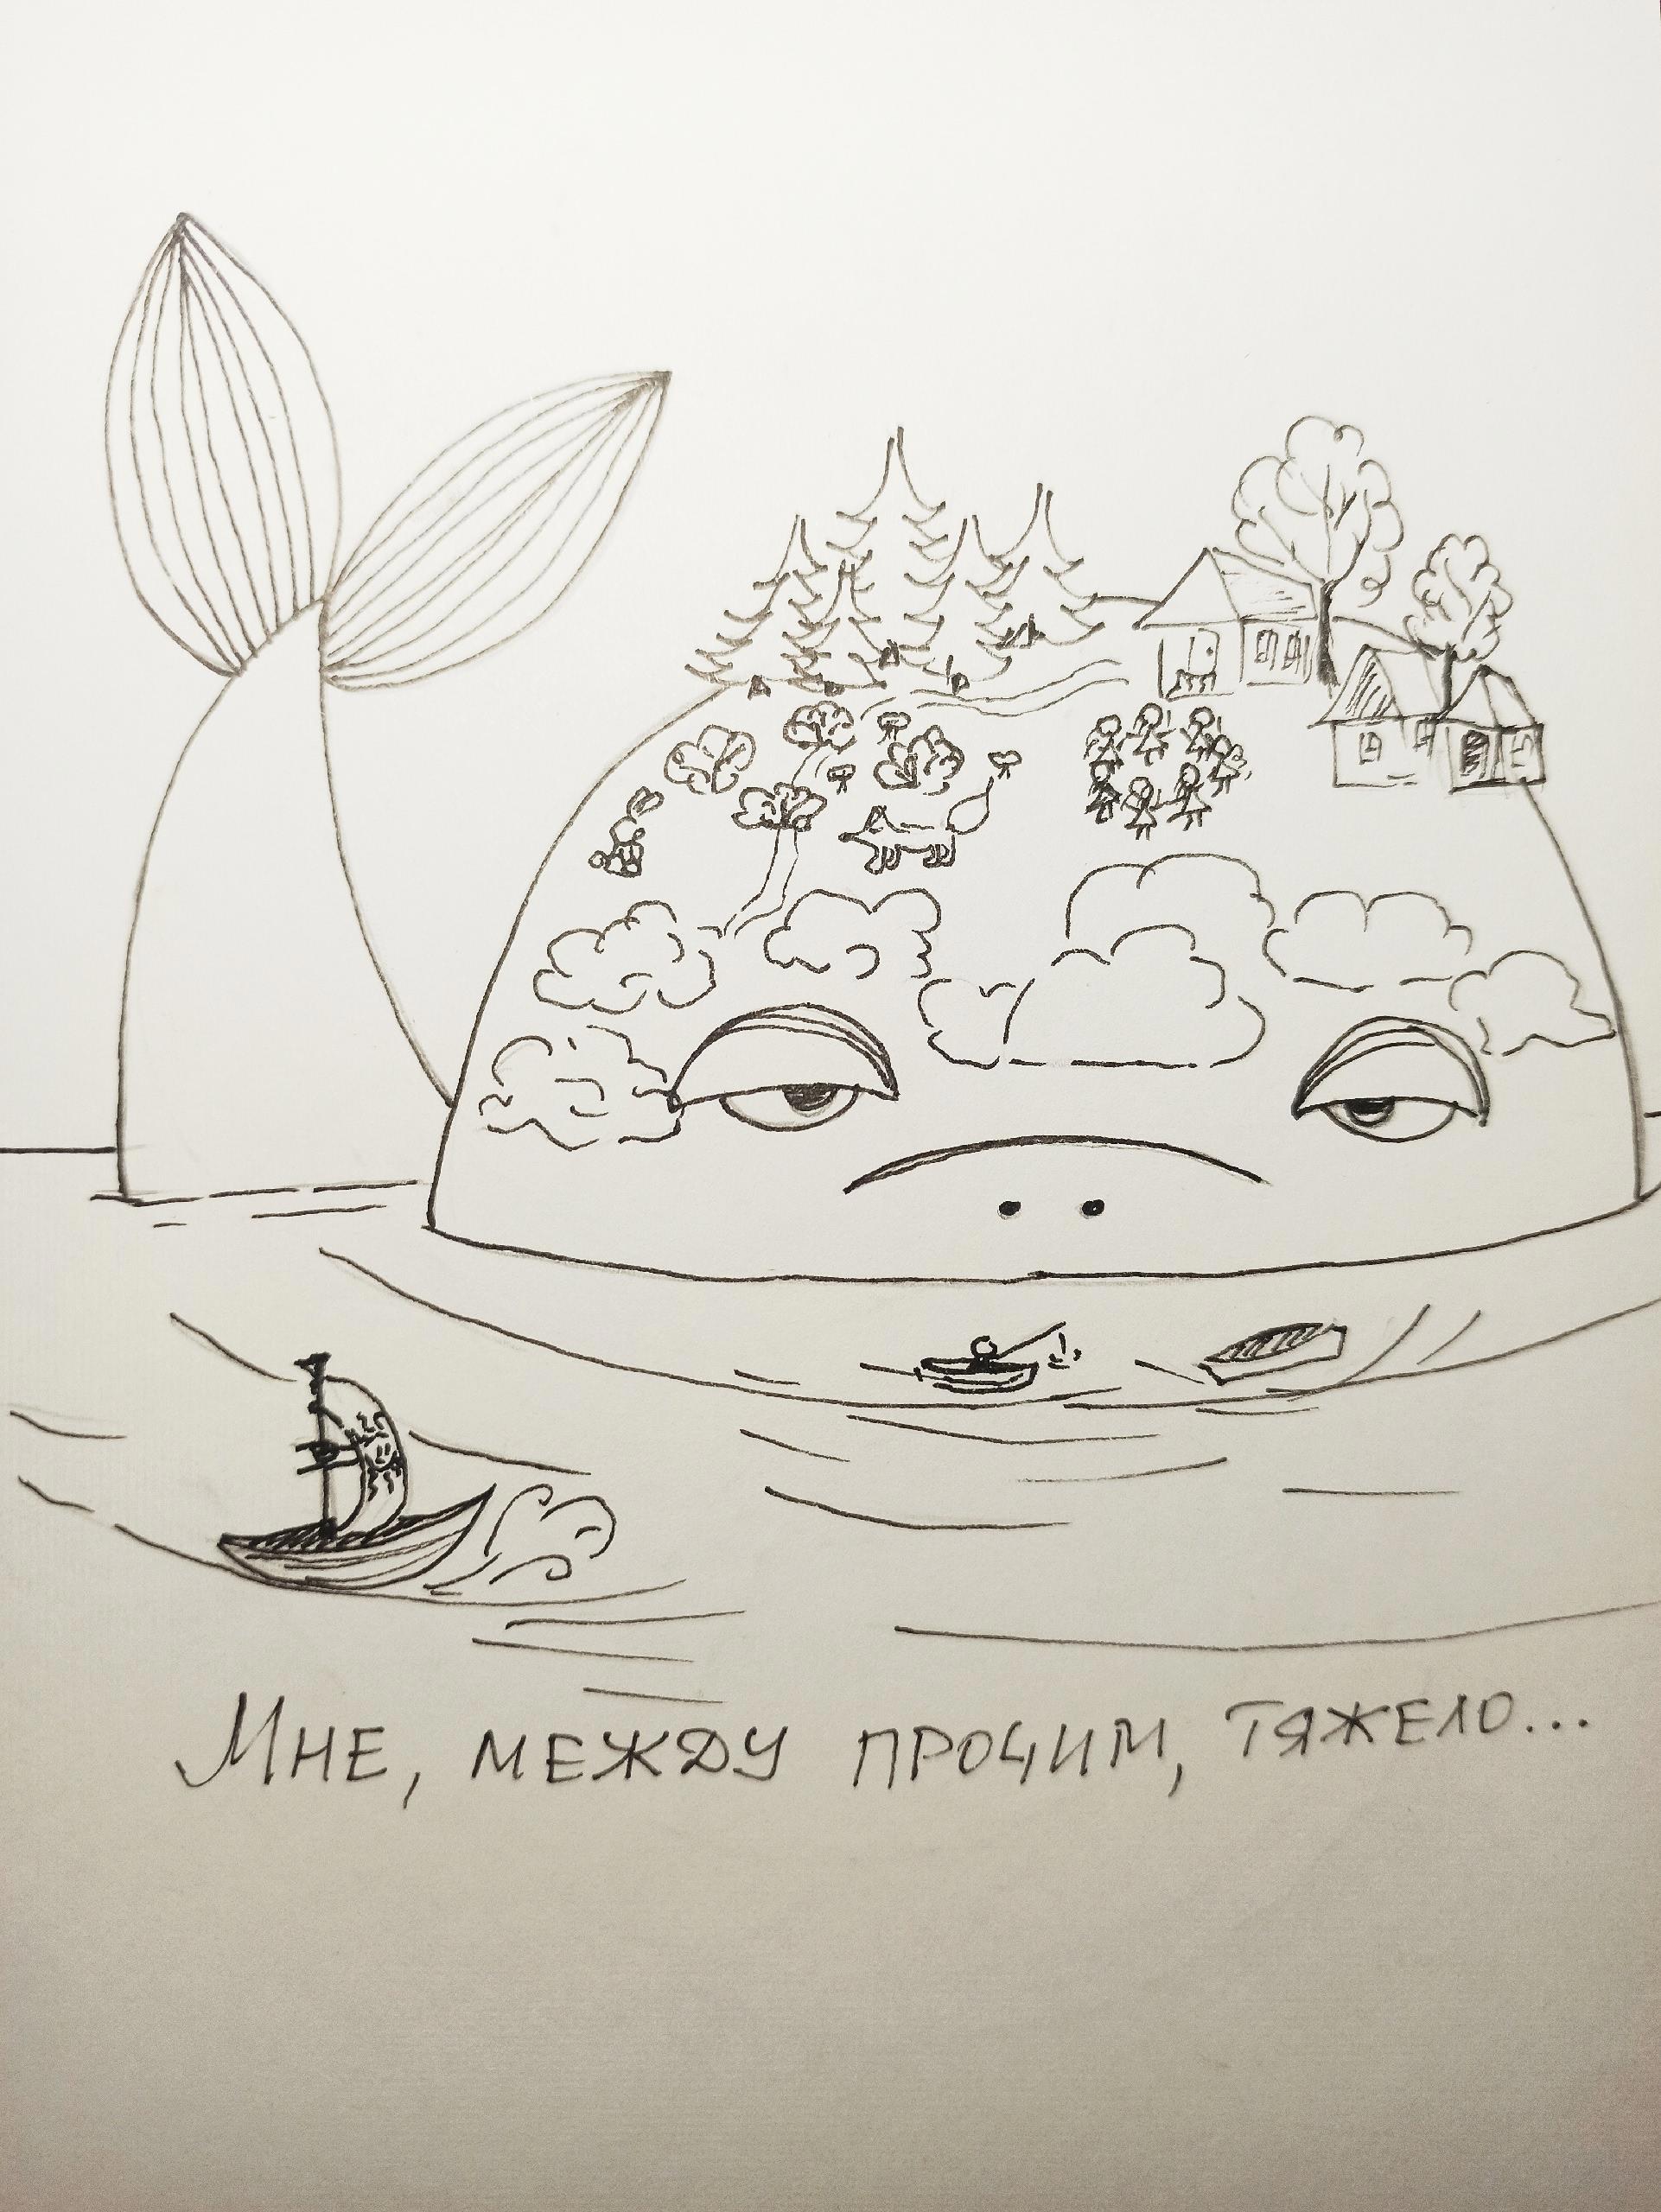 Мне, между прочим, тяжело...